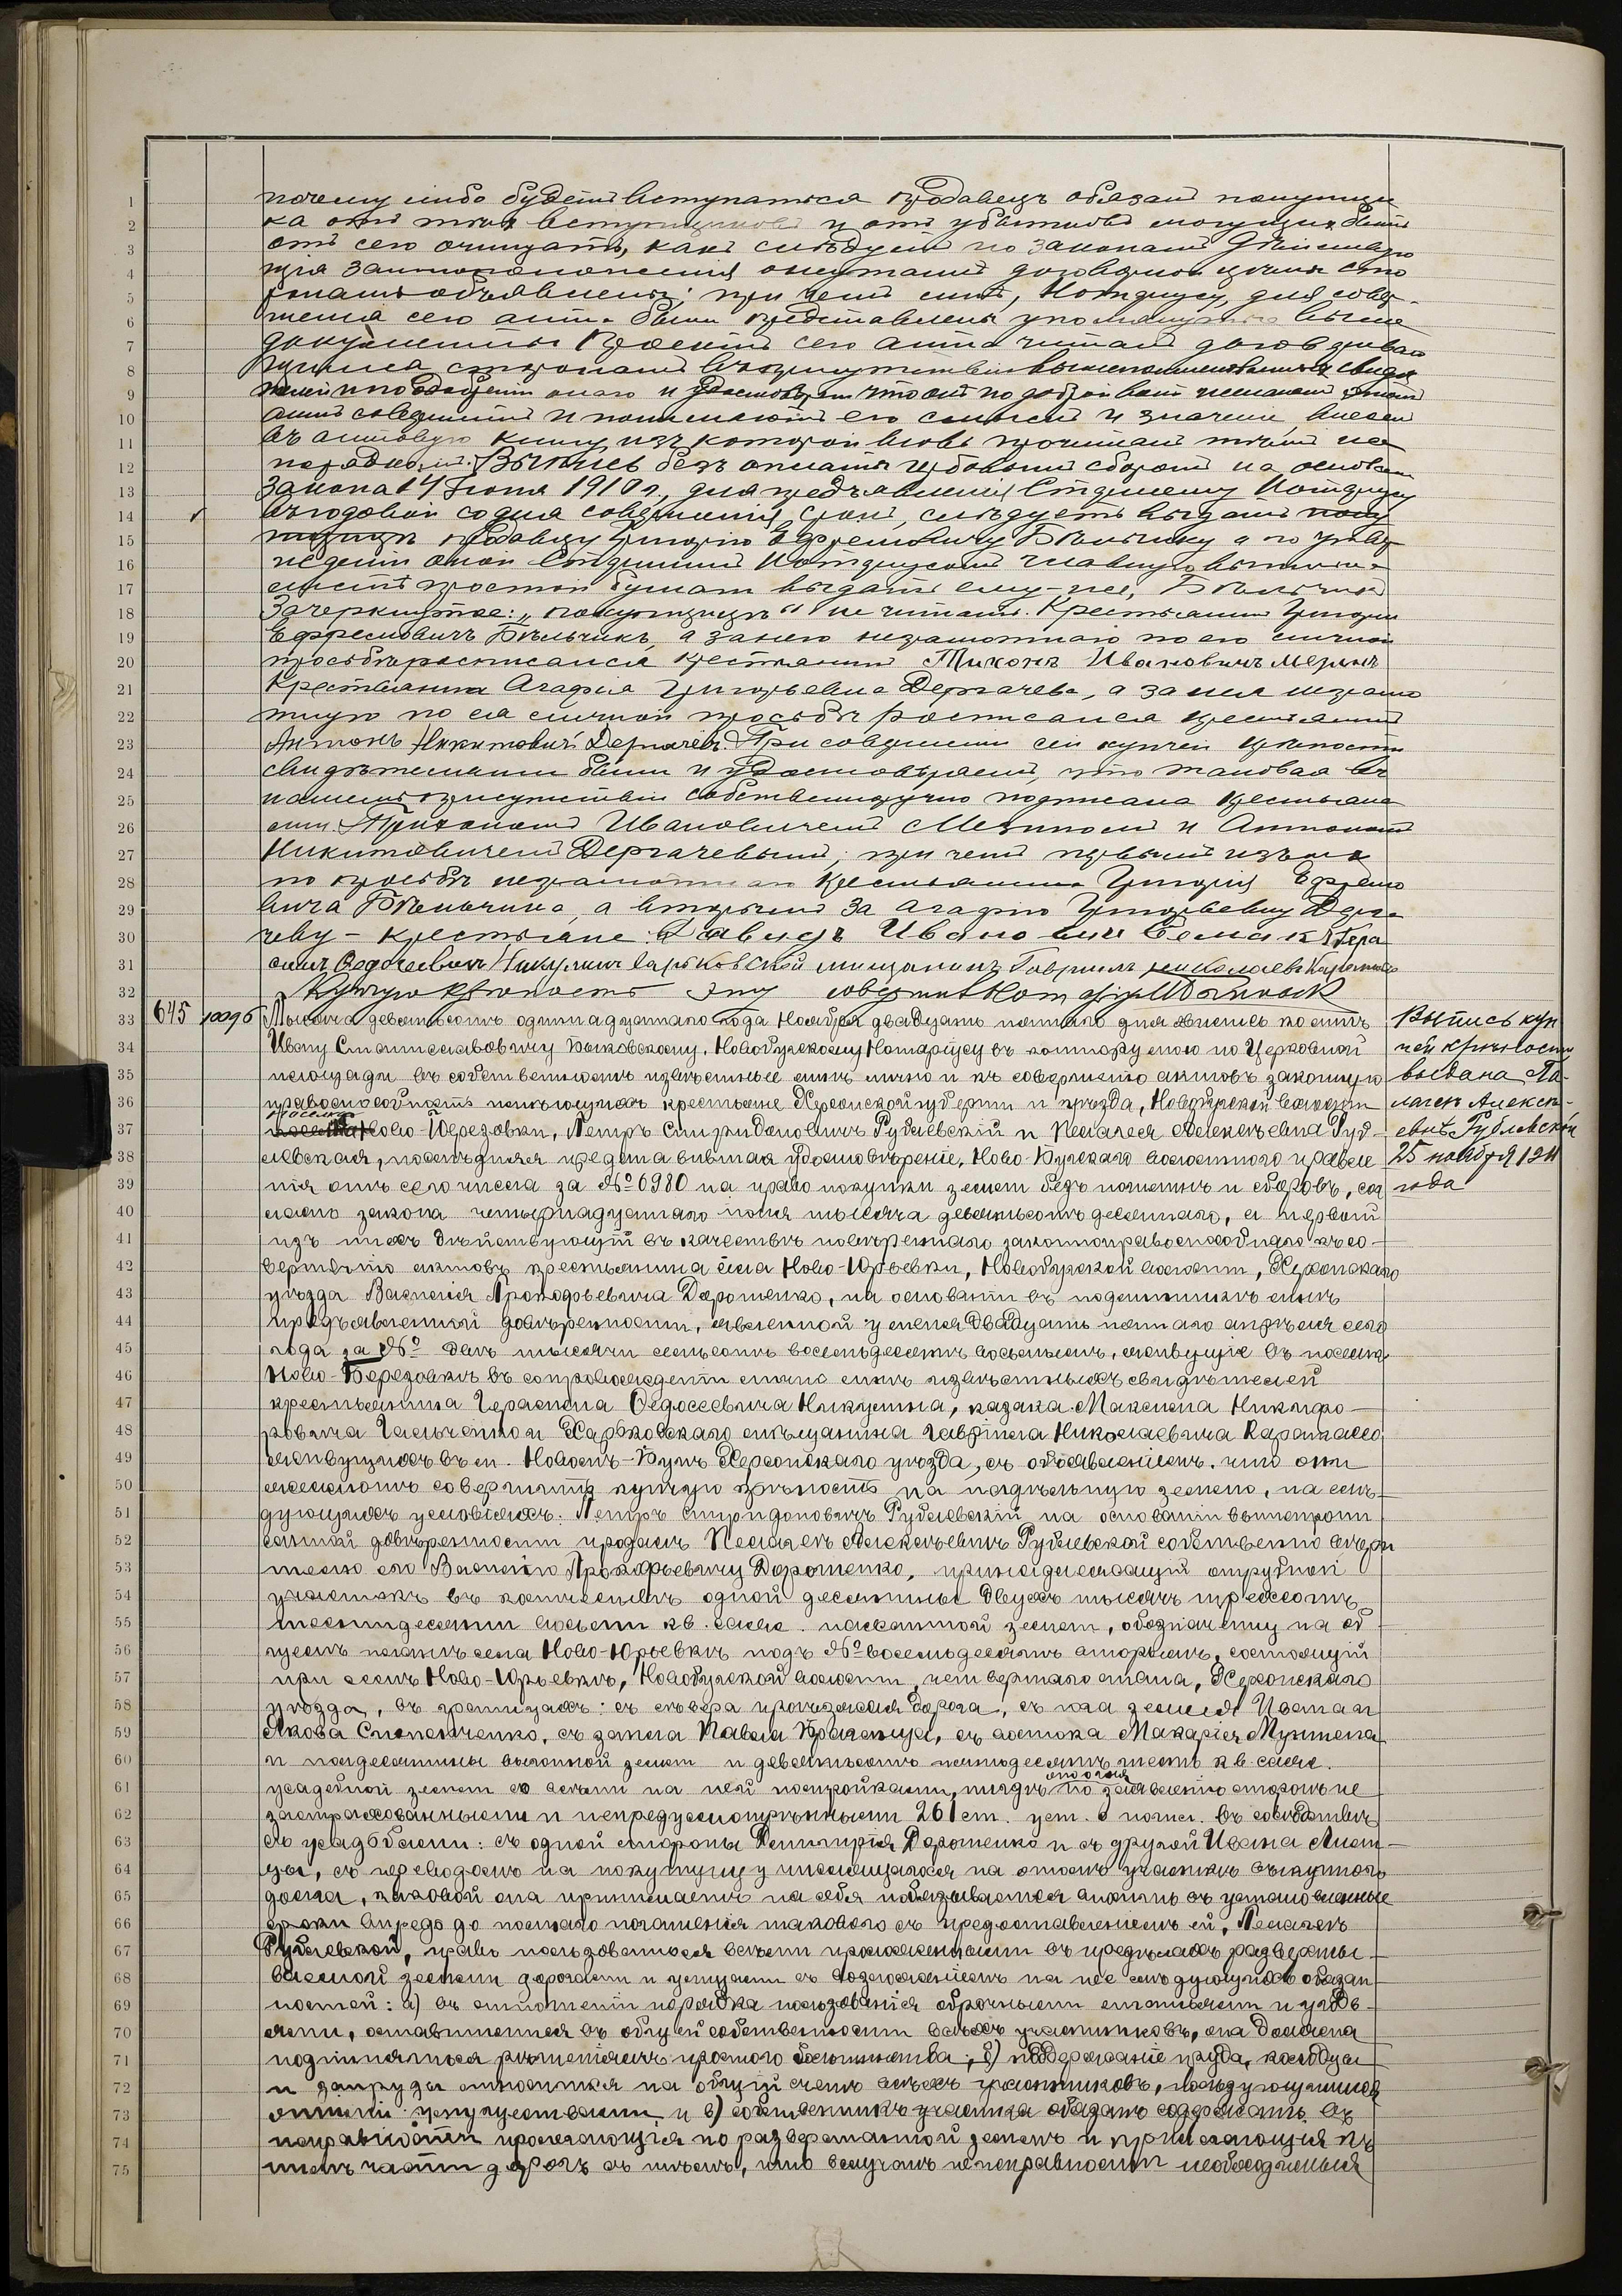 1 почему либо будетъ вступаться продавецъ обязанъ покупщи
2 ка отъ тѣхъ вступщиковъ и отъ убытковъ могущихъ быть
3 отъ сего очищать, какъ слѣдуетъ по законамъ
4 договорной
5 ронамъ объявлены; при чемъ мнѣ, Нотаріусу, для совер-
6 шенія сего акта были представлены упомянутые выше
7 документы Проектъ сего акта читанъ договаривав
8 шимся сторонамъ въ присутствіи вышепоименованныхъ свидѣ
9 телей и по одобреніи онаго и удостовѣреніи что они по доброй волѣ желаютъ этотъ
10 актъ совершить и понимаютъ его смыслъ и значеніе, внесенъ
11 въ актовую книгу, изъ которой вновь прочитанъ тѣмъ же
12 порядкомъ. Выпись безъ оплаты гербовымъ сборомъ на основаніи
13 закона 14 Іюня 1910 г., для предъявленія Старшему Нотаріусу
14 въ годовой со дня совершенія срокъ, слѣдуетъ выдать поку
15 продавцу Григорію Ефремовичу Бѣльчику а по утвер
16 жденіи оной Старшимъ Нотаріусомъ главную выпись на
17 листѣ простой бумаги выдать ему же, Бѣльчику
18 Зачеркнутое: „покупщицѣ“ не читать. Крестьянинъ Григорій
19 Ефремовичъ Бѣльчикъ, а за него неграмотнаго по его личной
20 просьбѣ росписался крестьянинъ Тихонъ Ивановичъ Мезинъ
21 Крестьянка Агафія Григорьевна Дергачева, а за нея неграмо
22 тную по ея личной просьбѣ росписался крестьянинъ
23 Антонъ Никитовичъ Дергачевъ. При совершеніи сей купчей крѣпости
24 свидѣтелями были и удостовѣряемъ, что таковая въ
25 нашемъ присутствіи собственноручно подписана крестьяна
26 ами Тихономъ Ивановичемъ Мезинымъ и Антономъ
27 Никитовичемъ Дергачевымъ; при чемъ первый изъ нихъ
28 по просьбѣ неграмотнаго крестьянина Григорія Ефремо
29 вича Бѣльчика, а вторымъ за Агафію Григорьевну Дерга
30 чеву - крестьяне: Давидъ Ивановичъ Гера
31 симъ Федосеевичъ Никулинъ Харьковской мещанинъ Гавріилъ Николаевъ
32 Купчую крѣпость эту совершилъ Нотаріусъ
33 645 10096 Тысяча девятьсотъ одиннадцатаго года Ноября двадцать пятаго дня явились ко мнѣ
34 Ивану Станиславовичу Быковскому, Новобугскому Нотаріусу въ контору мою по Церковной
35 площади въ собственномъ извѣстные мнѣ лично и къ совершенію актовъ законную
36 правоспособность имѣющихъ крестьяне Херсонской губерніи и уѣзда, Новобугской волости
37 поселка Ново-Березовки, Петръ Спиридоновичъ Рублевскій и Пелагея Алексѣевна Руб-
38 левская, послѣдняя предъявившая удостовѣреніе, Ново-Бугскаго волостного правле
39 нія отъ сего числа за № 6980 на право покупки земли безъ пошлинъ и сборовъ, сог
40 ласно закона четырнадцатаго іюня тысяча девятьсотъ десятаго, а первый
41 изъ нихъ дѣйствующій въ качествѣ повѣреннаго законноправоспособнаго къ со-
42 вершенію актовъ крестьянина села Ново-Юрьевки, Новобугской волости, Херсонскаго
43 уѣзда Василія Прокофьевича Дорошенко, на основаніи въ подлинникѣ мнѣ
44 предъявленной довѣренности, явленной у меня двадцать пятаго апрѣля сего
45 года за № двѣ тысячи семьсотъ восемьдесятъ восьмымъ, живущіе въ поселкѣ
46 Ново-Березовкѣ въ сопровожденіи лично мнѣ извѣстныхъ свидѣтелей
47 крестьянина Герасима Федосеевича Никулина, казака Максима Никифо-
48 ровича и Харьковскаго мѣщанина Гавріила Николаевича
49 живущихъ въ м. Новомъ-Бугѣ Херсонскаго уѣзда, съ объявленіемъ, что они
50 желаютъ совершить купчую крѣпость на надѣльную землю, на слѣ-
51 дующихъ условіяхъ: Петръ Спиридоновичъ Рублевскій на основаніи вышепропи
52 санной довѣренности продалъ Пелагеѣ Алексѣевнѣ Рублевской собственно довѣри
53 телю его Василію Прокофьевичу Дорошенко, принадлежащій отрубной
54 участокъ въ количествѣ одной десятины двухъ тысячъ трехсотъ
55 шестидесяти восьми кв. саж. пахатной земли, обозначенну на об
56 щемъ планѣ села Ново-Юрьевки подъ № восемьдесятъ вторымъ, состоящій
57 при селѣ Ново-Юрьевкѣ, Новобугской волости, четвертаго стана, Херсонскаго
58 уѣзда, въ границахъ: съ сѣвера проѣзжая дорога, съ юга земля
59 Якова Степанченко, съ запада Павла съ востока Макарія
60 и полдесятины выгонной земли и девятьсотъ пятьдесятъ шесть кв. саж.
61 усадебной земли со всѣми на ней постройками, нигдѣ по заявленію сторонъ не
62 застрахованными и непредусмотрѣнными 261 ст. уст. о пошл. въ сосѣдствѣ
63 съ усадьбами: съ одной стороны Дмитрія Дорошенко и съ другой Ивана
64 съ переводомъ на покупщицу числящагося на этомъ участкѣ выкупного
65 долга, каковой она принимаетъ на себя и обязывается вносить въ установленные
66 сроки впредь до полнаго погашенія таковаго съ предоставленіемъ ей, Пелагеѣ
67 Рублевской, права пользоваться всѣми проложенными въ предѣлахъ разверсты-
68 ваемой земли дорогами и улицами съ возложеніемъ на нее слѣдующихъ обязан
69 ностей: а) въ отношеніи порядка пользованія оброчными статьями и угодь-
70 ями, оставшимися въ общей собственности всѣхъ участниковъ, она должна
71 подчиняться рѣшеніямъ простого большинства; б) поддержаніе пруда, колодца
72 и запруды относится на общій счетъ всѣхъ участниковъ, пользующимися
73 этими имуществами и в) собственникъ участка обязанъ содержать въ
74 исправности пролегающія по разверстанной землѣ и прилегающія къ
75 нимъ части дорогъ съ тѣмъ, что въ случаѣ неисправности необходимыя
Выпись куп
чей крѣпости
выдана Пе-
лагеѣ Алексѣ-
евнѣ Рублевской
25 ноября 1911
года